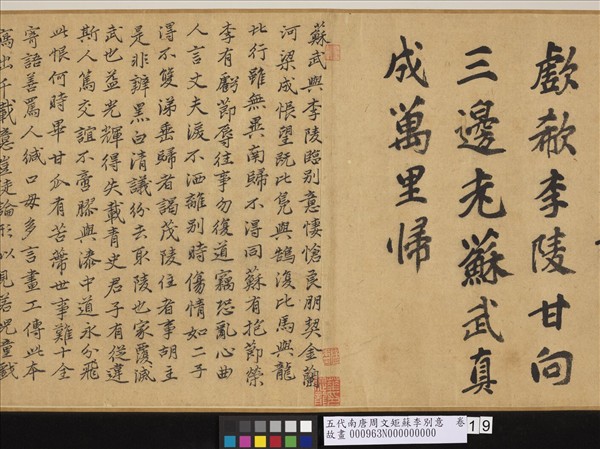 歔欷李陵甘向
三邊老蘇武真
成萬里歸
蘇武與李陵臨別意悽愴良朋契金蘭
河梁成悵望既比凫與鵠復比馬與龍
比行雖無異南歸不得同蘇有抱節榮
李有虧節辱往事勿復道竊恐亂心曲
人言丈夫淚不洒離別時傷情如二子
得不雙涕垂歸者謁茂陵住者事胡主
是非辯黑白清議紛去取陵也家覆滅
武也益光輝得失載青史君子有從違
斯人篤交誼不啻膠與漆中道永分飛
此恨何時畢甘瓜有苦蒂世事難十全
寄語善罵人緘口毋多言畫工傳此本
寓出千載意豈徒論形似見若兒童戲
五代南唐周文矩蘇李別意 卷
故畫 000963N000000000
19